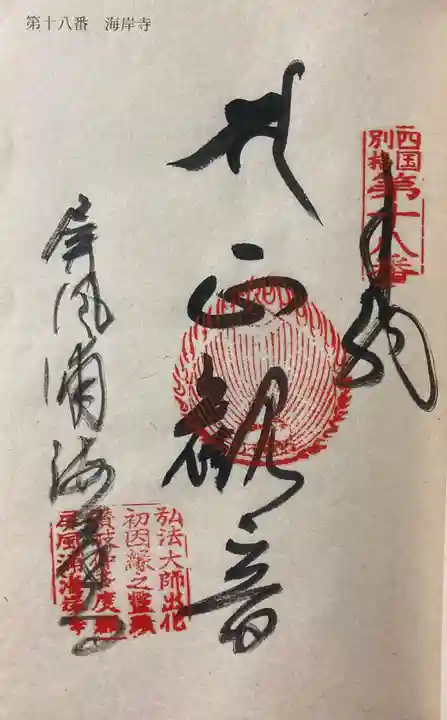 第十八番 海岸寺
四国
別格
第十八番
奉納
正観音
屏風浦海岸寺
弘法大師出化
初因縁之霊跡
讃岐仲多度郡
屏風浦海岸寺